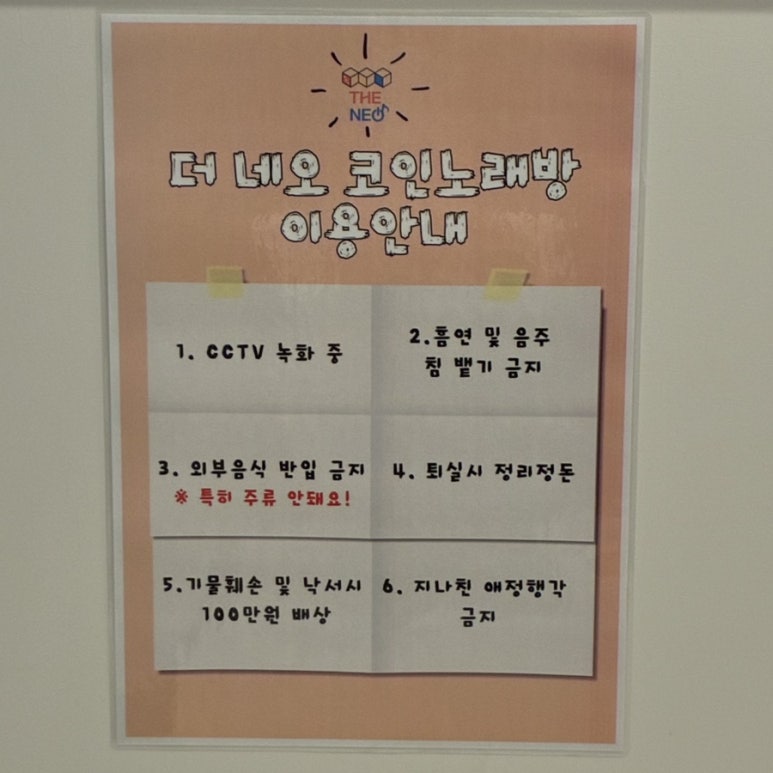 THE
NEO
더 네오 코인노래방
이용안내
1. CCTV 녹화 중
2.흡연 및 음주
침 뱉기 금지
3. 외부음식 반입 금지
※ 특히 주류 안돼요!
4. 퇴실시 정리정돈
5.기물훼손 및 낙서시
100만원 배상
6. 지나친 애정행각
금지